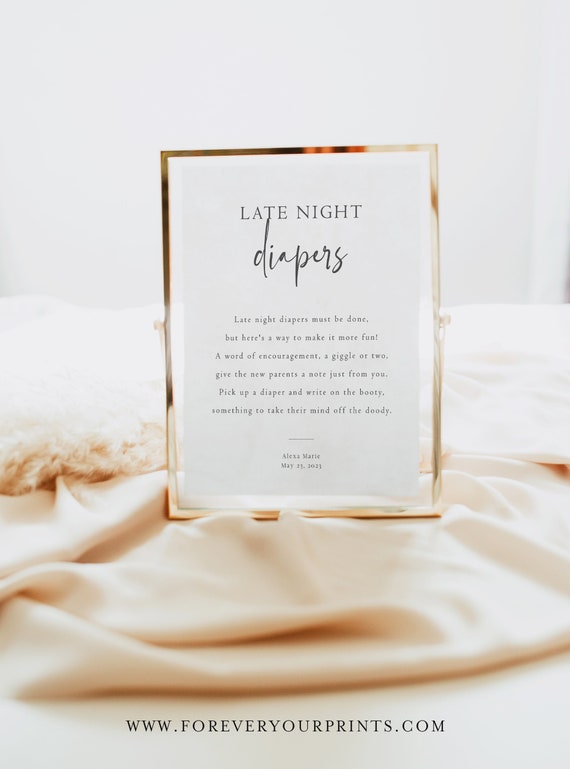 LATE NIGHT
diapers
Late night diapers must be done,
but here's a way to make it more fun!
A word of encouragement, a giggle or two,
give the new parents a note just from you.
Pick up a diaper and write on the booty,
something to take their mind off the doody.
Alexa Marie
May 25, 2023
WWW.FOREVERYOURPRINTS.COM